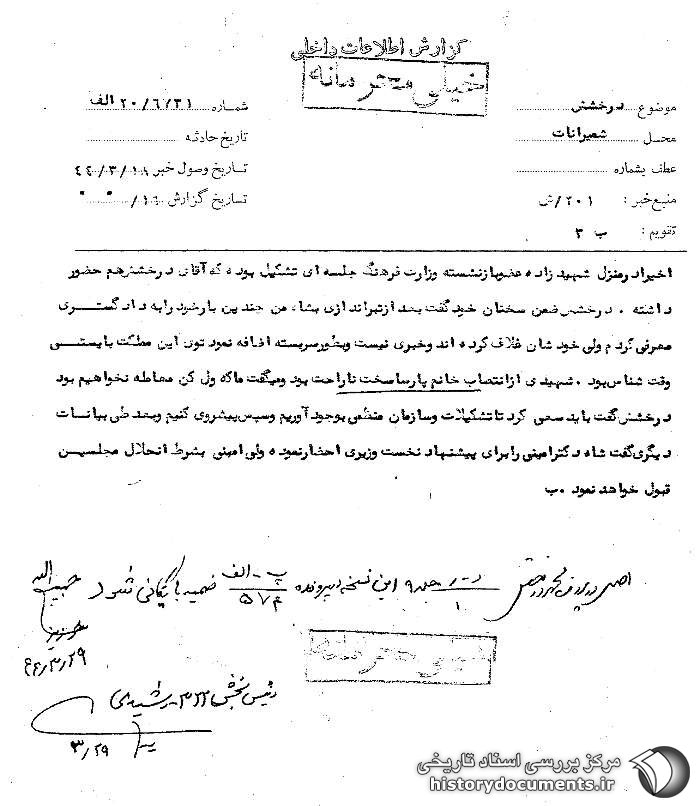 گزارش اطلاعات داخلی
خیلی محرمانه
موضوع درخشش
محل شمیرانات
عطف بشماره
منبع خبر : ۲۰۱/ش
تقویم : ب ۳
شماره ۲۰/۶/۳۱ الف
تاریخ حادثه
تاریخ وصول خبر ۴۴/۳/۱۸
تاریخ گزارش ۱۹/
اخیرا درمنزل شهیدزاده عضو بازنشسته وزارت فرهنگ جلسه ای تشکیل بوده که آقای درخشش هم حضور
داشته . درخشش ضمن سخنان خود گفت بعد از تیراندازی بشاه من چندین بار خود را به دادگستری
معرفی کردم ولی خودشان غلاف کرده اند وخبری نیست وبطور سربسته اضافه نمود توی این مملکت بایستی
وقت شناس بود . شهیدی از انتصاب خانم پارسا سخت ناراحت بود ومیگفت ماکه ول کن معامله نخواهیم بود
درخشش گفت باید سعی کرد تا تشکیلات وسازمان منظمی بوجود آوریم وسپس پیشروی کنیم وبعد طی بیانات
دیگری گفت شاه دکتر امینی را برای پیشنهاد نخست وزیری احضار نموده ولی امینی بشرط انحلال مجلسین
قبول خواهد نمود . ب
اصل در پرونده محمد درخشش د - ر / ۱ جلد ۹ این نسخه در پرونده پ - الف / ۵۷۴ ضمیمه بایگانی شود
حبیب الله
عزیزی
۴۴/۳/۲۹
خیلی محرمانه
رئیس بخش ۳۲۲ رشیدی
۳/۲۹
مرکز بررسی اسناد تاریخی
historydocuments.ir